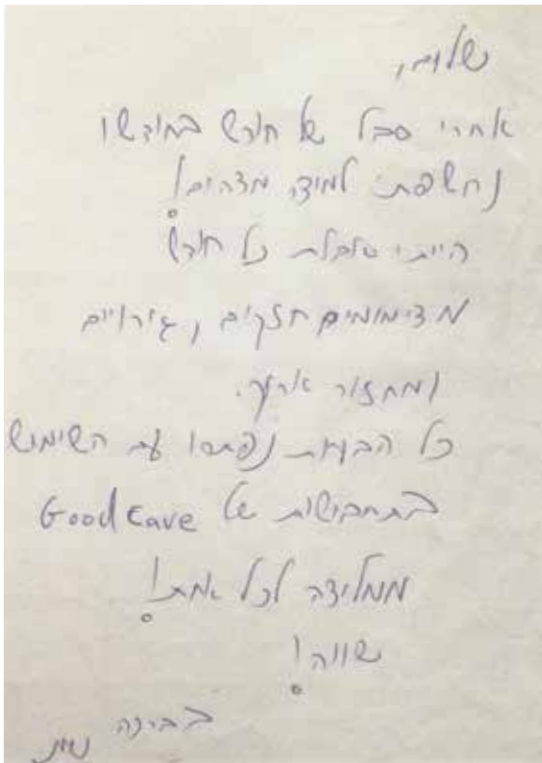 שלום,
אחרי סבל של חודש בחודשו
נחשפתי למוצר מדהים!
הייתי סובלת כל חודש
מדימומים חזקים, גירויים
ומחזור ארוך.
כל הבעיות נפתרו עם השימוש
בתחבושות של Good Care
ממליצה לכל אחת!
שווה!
בברכה